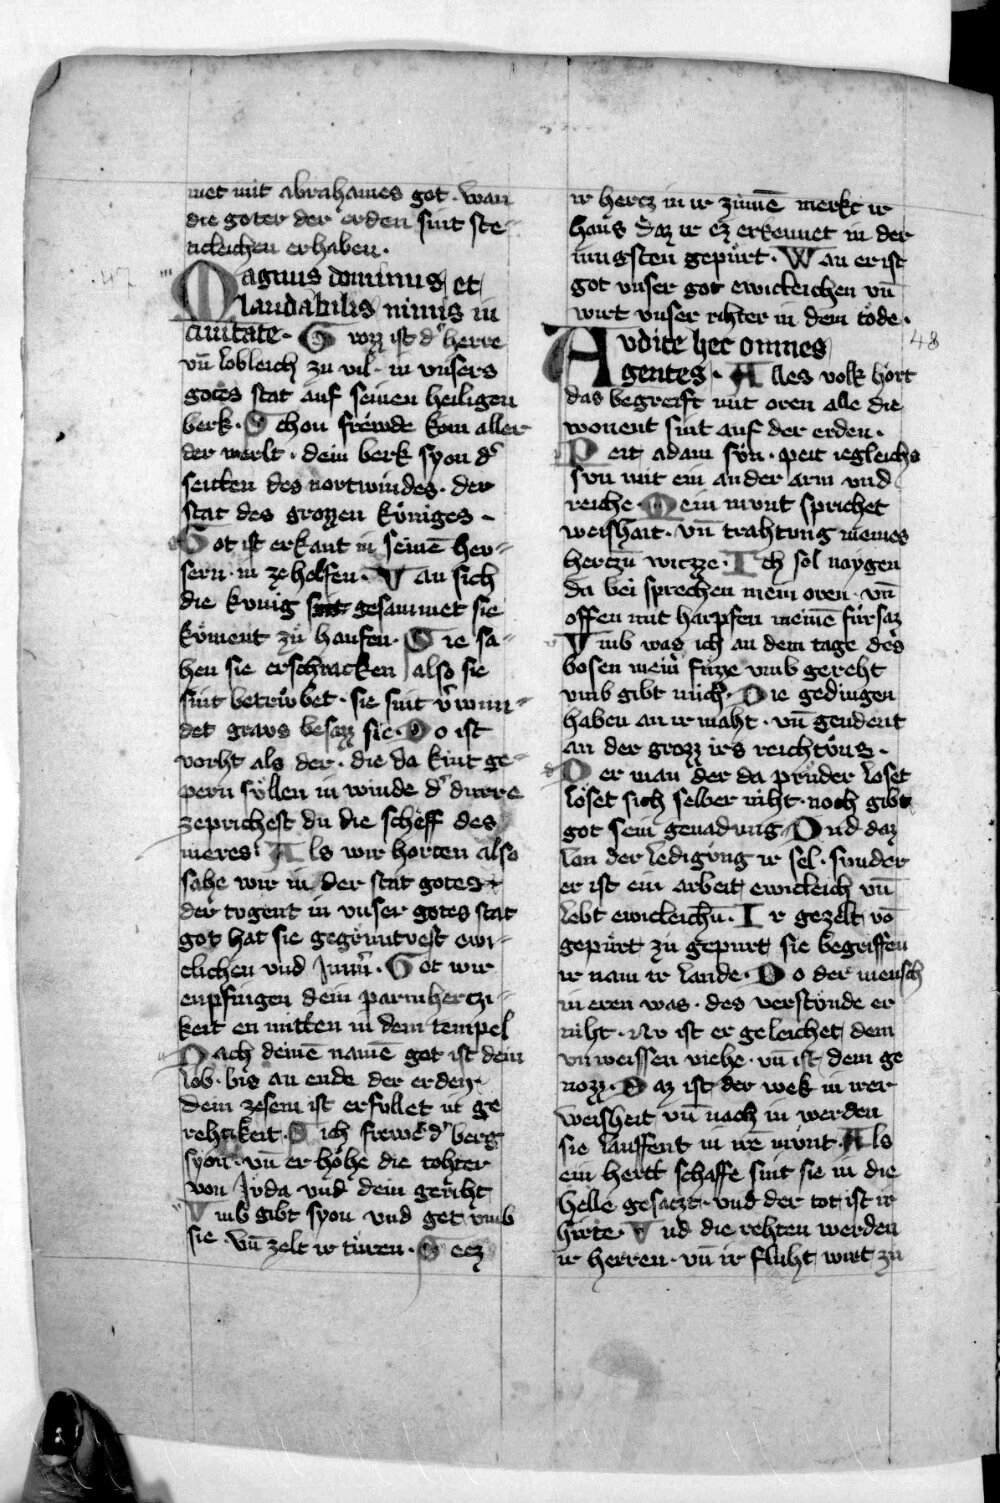 met mit abrahames got · wan
die goter der erden sint ste-
ticleichen erhaben ·
47
Magnus dominus et
laudabilis nimis in
ciuitate · Grozz ist d' herre
vn̄ lobleich zu vil · in vnsers
gotes stat auf seinen heiligen
berk · Schon frewde kom aller
der werlt · dem berk syon d'
seiten des nortwindes · der
stat des grozzen kuniges ·
Got ist erkant in seinē hev-
sern · in ze helfen · Wan sich
die kunig sint gesammet sie
koment zu haufen · Sie sa-
hen sie erschracken also sie
sint betrubet · sie sint v'wun-
det graus besazz sie · Do ist
vorht als der · die da kint ge-
pern sullen in winde d' durre
zeprichest du die scheff des
meres · Als wir horten also
sahe wir in der stat gotes
der tvgent in vnser gotes stat
got hat sie gegruntvest ewi-
clichen vnd imm' · Got wir
enpfingen dein parmhertzi-
keit en mitten in dem tempel
Nach deinē namē got ist dein
lob · bis an ende der erden ·
dein zesem ist erfullet in ge
rehtikeit · Sich frewe d' berg
syon · vn̄ er hohe die tohter
von Juda vnd dein geriht
Vmb gibt syon vnd get vmb
sie · vn̄ zelt ir turen · Secz
ir hercz in ir zimmē merkt ir
haus daz ir ez erkennet in der
iungsten gepurt · Wan er ist
got vnser got ewicleichen vn̄
wirt vnser rihter in dem tode ·
48
Avdite hec omnes
gentes · Alles volk hort
das begreift mit oren alle die
wonent sint auf der erden ·
Peit adam sun · peit iegleichs
svn mit ein ander arm vnd
reiche · Mein mvnt sprichet
weishait · vn̄ trahtvng meines
herczn̄ wiczze · Ich sol naygen
da bei sprechen mein oren · vn̄
offen mit harpfen meinē fursaz
Vmb was ich an dem tage des
bosen mein' fuze vmb gereht
vmb gibt mich · Die gedingen
haben an ir maht · vn̄ gendent
an der grozz irs reichtuns ·
Der man der da pruder loset
loset sich selber niht · noch gibt
got sein genadvng · Vnd daz
lon der ledigung ir sel · svnder
er ist ein arbeit ewicleich vn̄
lebt ewicleichn̄ · Ir gezelt vō
gepurt zu gepurt sie begriffen
ir nam ir lande · Do der mensch
in eren was · des verstunde er
niht · Nv ist er geleichet dem
vnweissen viehe · vn̄ ist dem ge
nozz · Daz ist der wek in irer
weisheit vn̄ nach in werden
sie lauffent in irē mvnt · Als
ein hertt schaffe sint sie in die
helle gesaczt · vnd der tot ist ir
hirte · Vnd die rehten werden
ir herren · vn̄ ir fluht wirt zu